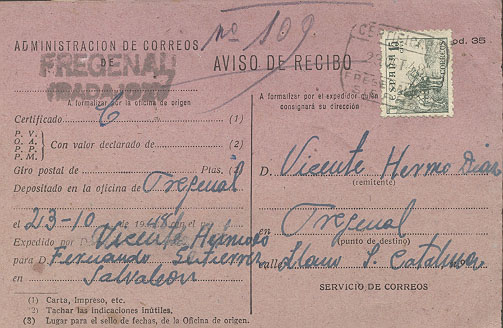 nº 109
ADMINISTRACION DE CORREOS
DE
FREGENAL
(BADAJOZ)
AVISO DE RECIBO
od. 35
CERTIFICA
23 OCT
ESPAÑA
CORREOS
A formalizar por la oficina de origen
Certificado C (1)
P. V.
O. A.
P. P.
P. M.
Con valor declarado de (2)
Giro postal de Ptas. (3)
Depositado en la oficina de Fregenal
el 23-10 de 1948 con el
Expedido por D. Vicente Hermoso
para D. Fernando Gutierrez
en Salvaleon
(1) Carta, Impreso, etc.
(2) Tachar las indicaciones inútiles.
(3) Lugar para el sello de fechas, de la Oficina de origen.
A formalizar por el expedidor quien
consignará su dirección
D. Vicente Hermo Diaz
(remitente)
en Fregenal
(punto de destino)
calle Llano S. Catalina
SERVICIO DE CORREOS